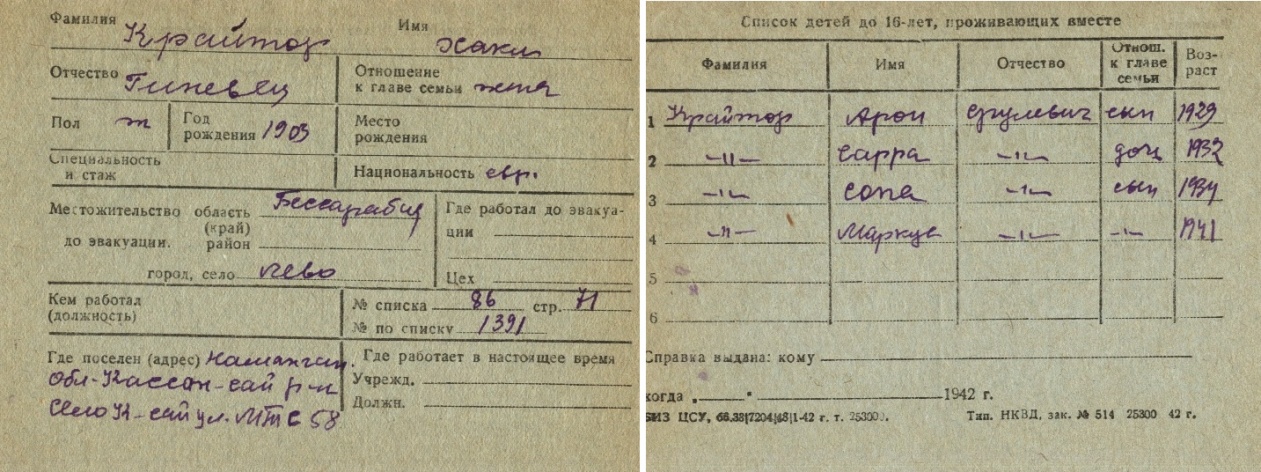 Фамилия Крайтор Имя Хакл
Отчество Гиневец Отношение к главе семьи жена
Пол ж Год рождения 1903 Место рождения
Специальность и стаж Национальность евр.
Местожительство до эвакуации. область (край) Бессарабия район
город, село Лево
Где работал до эвакуации
Цех
Кем работал (должность)
№ списка 86 стр. 71
№ по списку 1391
Где поселен (адрес) Наманган.
Обл-Кассан-сай р-н
Село К-сай ул. МТС 58
Где работает в настоящее время
Учрежд.
Должн.
Список детей до 16-лет, проживающих вместе
Фамилия Имя Отчество Отнош. к главе семьи Возраст
1 Крайтор Арон Срулевич сын 1929
2 -"- Сарра -"- доч 1932
3 -"- Сопа -"- сын 1934
4 -"- Маркус -"- -"- 1941
5
6
Справка выдана: кому
когда „ " 1942 г.
БИЗ ЦСУ, т. 25300. Тип. НКВД, зак. № 514 25300 42 г.